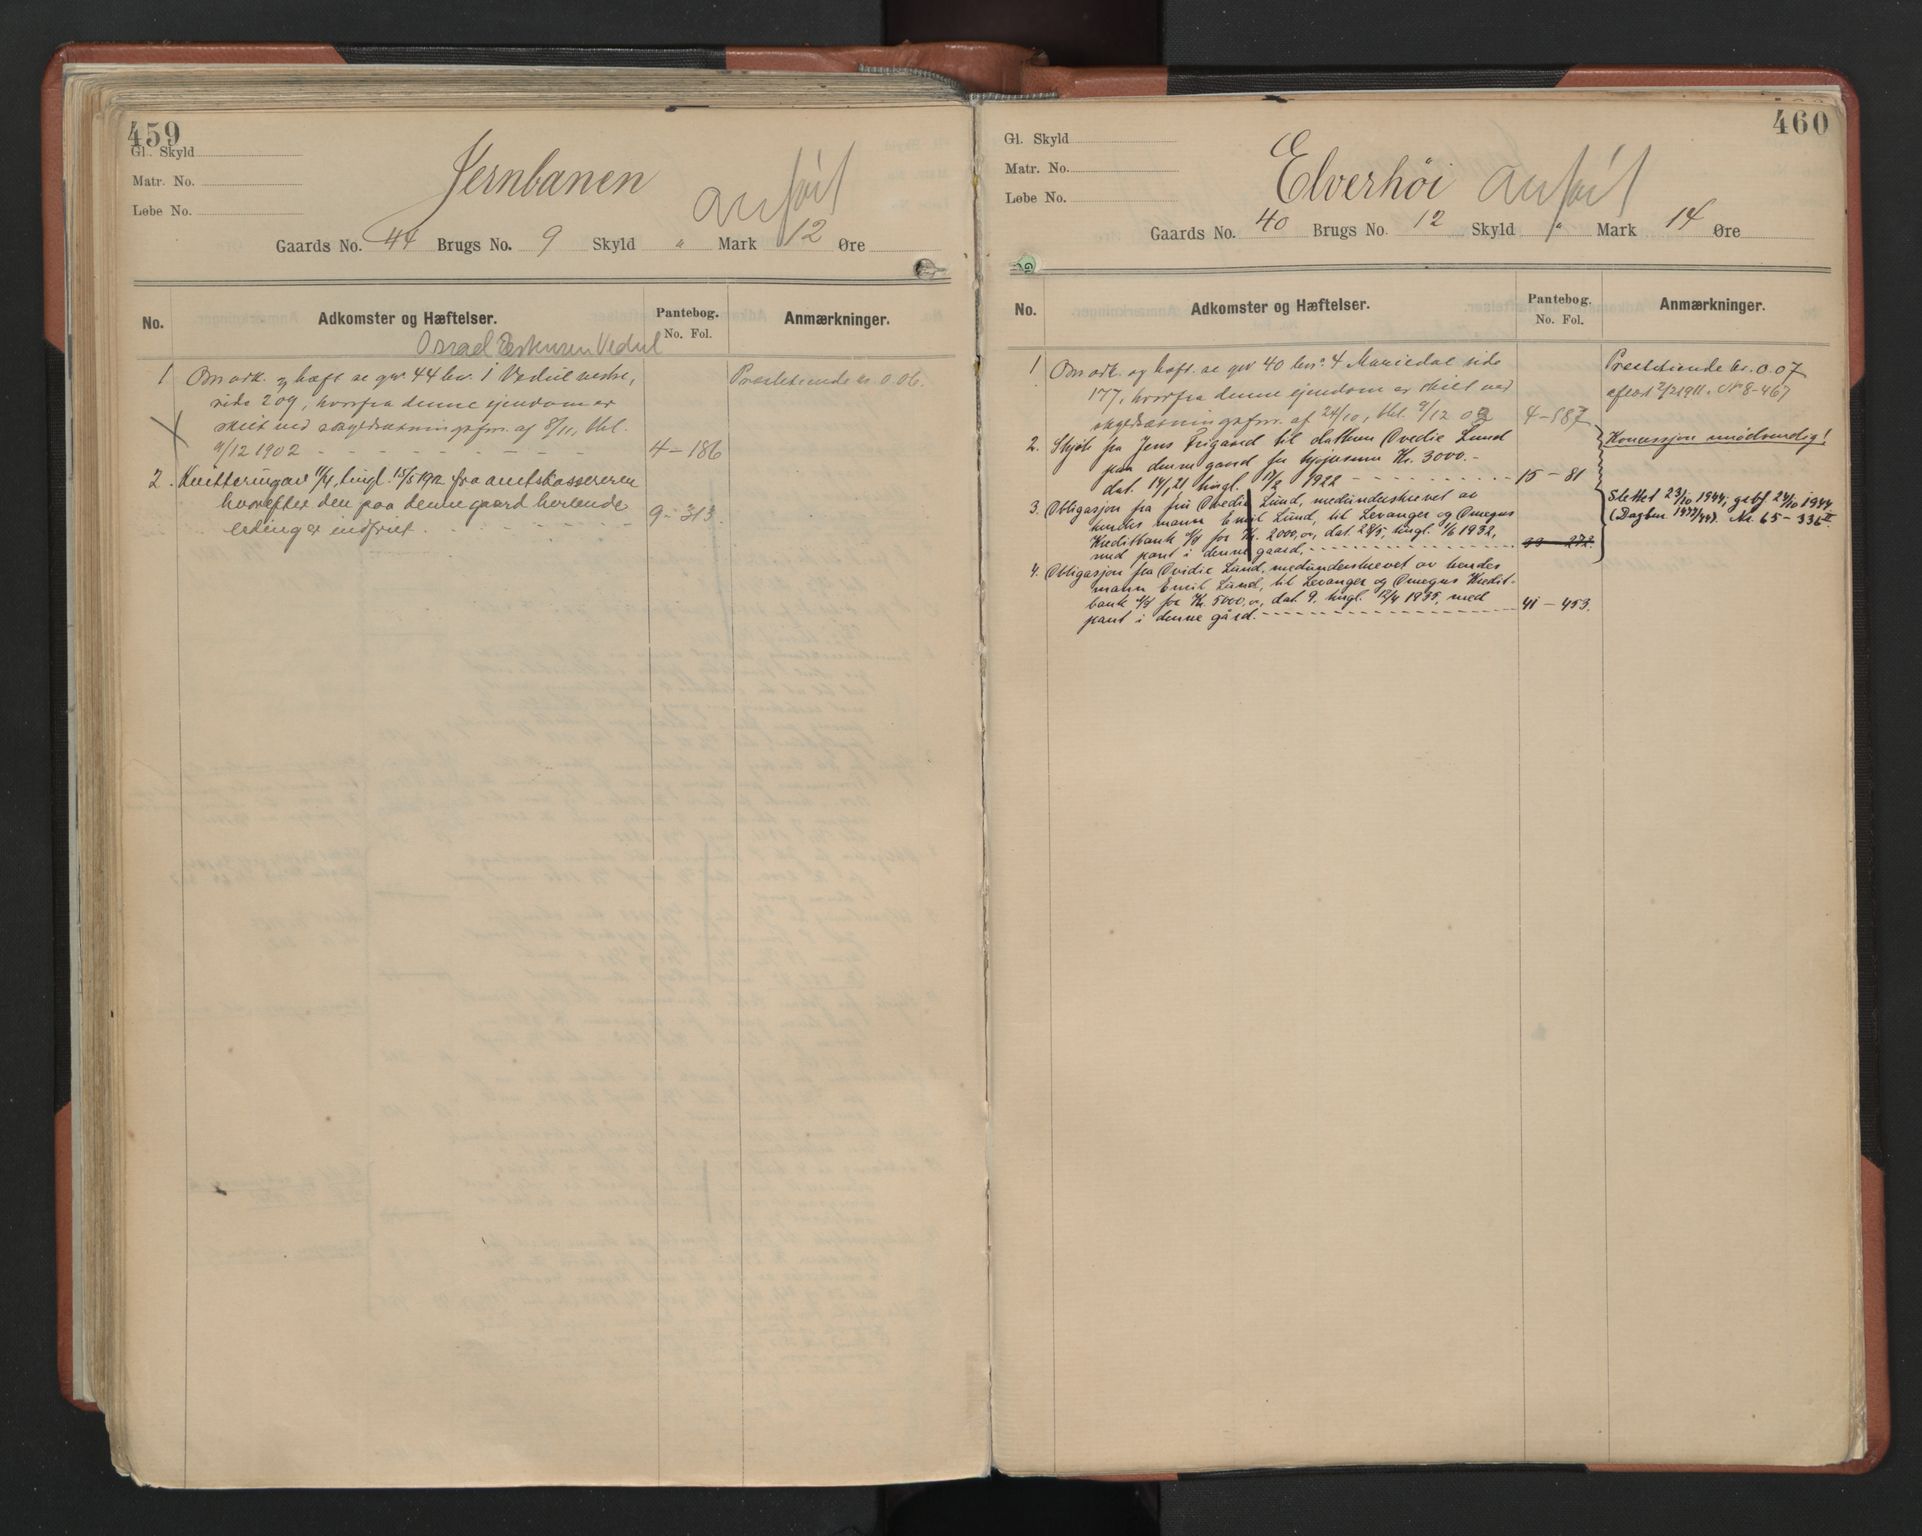 459
Gl. Skyld
Matr. No.
Løbe No.
Jernbanen
anført
Gaards No. 44 Brugs No. 9 Skyld " Mark 12 Øre
No. Adkomster og Hæftelser. Pantebog. No. Fol. Anmærkninger.
Vedul
1 Om adk. og hæft. se gnr. 44 bnr. 1 Vedul vestre, Præsteteiende kr. 0.06.
side 209, hvorfra denne eiendom er
skilt ved skyldsætningsfor. af 8/11, thl.
9/12 1902 4-186
2. Kvittering av 11/4, tingl. 15/5 1912 fra amtskassereren
hvorefter den paa denne gaard heftende
er indfriet. 9-313.
460
Gl. Skyld
Matr. No.
Løbe No.
Elverhøi
anført
Gaards No. 40 Brugs No. 12 Skyld " Mark 14 Øre
No. Adkomster og Hæftelser. Pantebog. No. Fol. Anmærkninger.
1 Om adk. og hæft. se gnr 40 bnr. 4 Mariedal side Præsteteiende kr. 0.07
177, hvorfra denne eiendom er skilt ved afløst 2/2 1911. No 8-467
skyldsætningsfor. af 24/10, thl. 9/12 02 4-187
2. Skjøt fra Jens Frigaard til datteren Ovedie Lund Koncessjon unødvendig!
paa denne gaard for kjøpesum Kr. 3000.-
dat. 14/1, 21 tingl. 1922 15-81
3. Obligasjon fra fru Ovedie Lund, medunderskrevet av Slettet 23/10 1944, gebf 24/10 1944
hendes mann Emil Lund, til Levanger og Omegns (Dagbnr. 1477/44). Nr. 65-336 II
Kreditbank a/s for Kr. 2000,oo, dat. 28/5, tingl. 1/6 1932,
med pant i denne gaard. 39-272.
4. Obligasjon fra Ovidie Lund, medunderskrevet av hendes
mann Emil Lund, til Levanger og Omegns Kredit-
bank a/s for Kr. 5000,oo, dat. 9. tingl. 12/4 1935, med
pant i denne gård. 41-453.